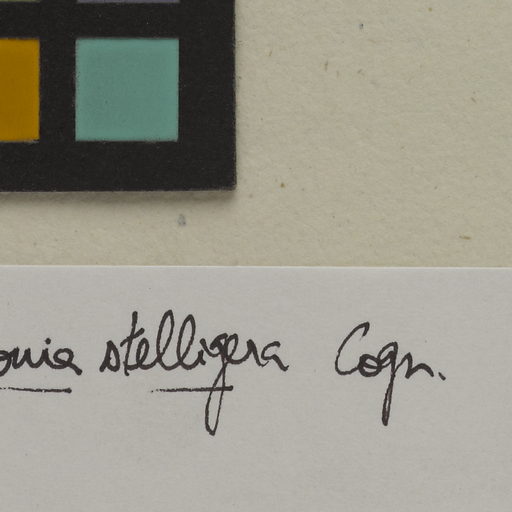 onia stelligera Cogn.